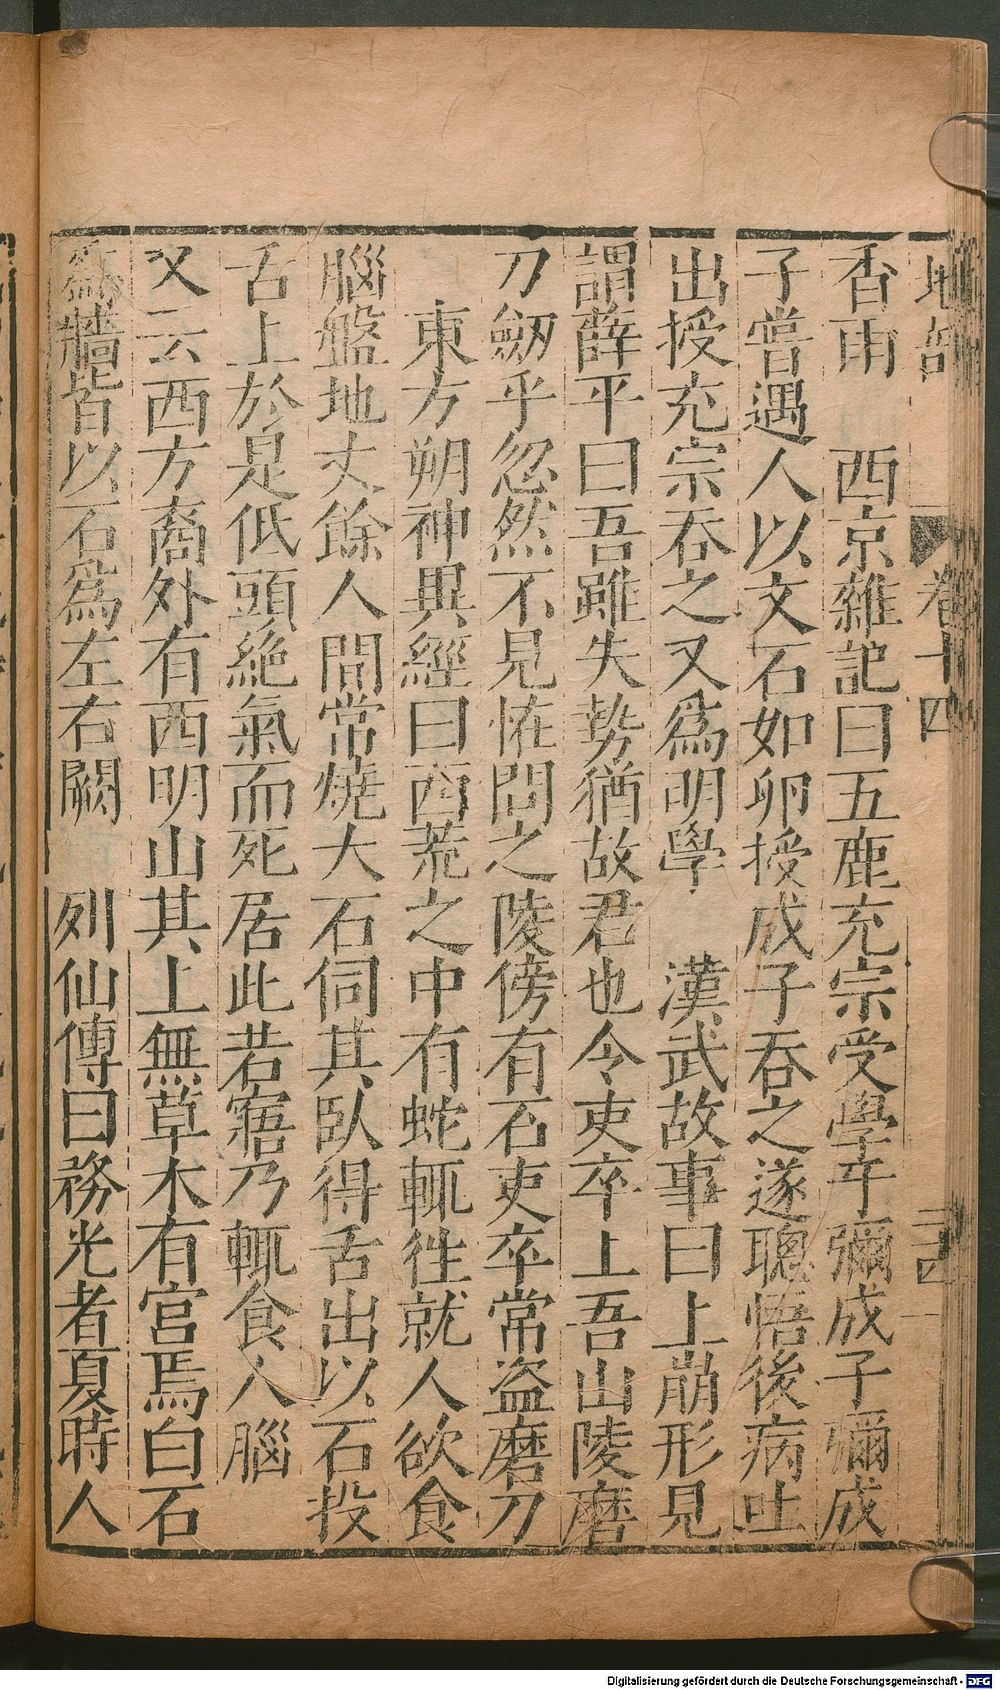 地部 卷十四 二百
香雨 西京雜記曰五鹿充宗受學于彌成子彌成
子嘗遇人以文石如卵授成子吞之遂聰悟後病吐
出授充宗吞之又爲明學 漢武故事曰上崩形見
謂薛平曰吾雖失勢猶故君也令吏卒上吾山陵磨
刀劒乎忽然不見恠問之陵傍有石吏卒常盜磨刀
東方朔神異經曰西荒之中有蛇輒徃就人欲食
腦盤地丈餘人間常燒大石伺其臥得舌出以石投
舌上於是低頭絶氣而死居此若寤乃輒食人腦
又云西方裔外有西明山其上無草木有宮焉白石
牆皆以石爲左右闕 列仙傳曰務光者夏時人
Digitalisierung gefördert durch die Deutsche Forschungsgemeinschaft - DFG